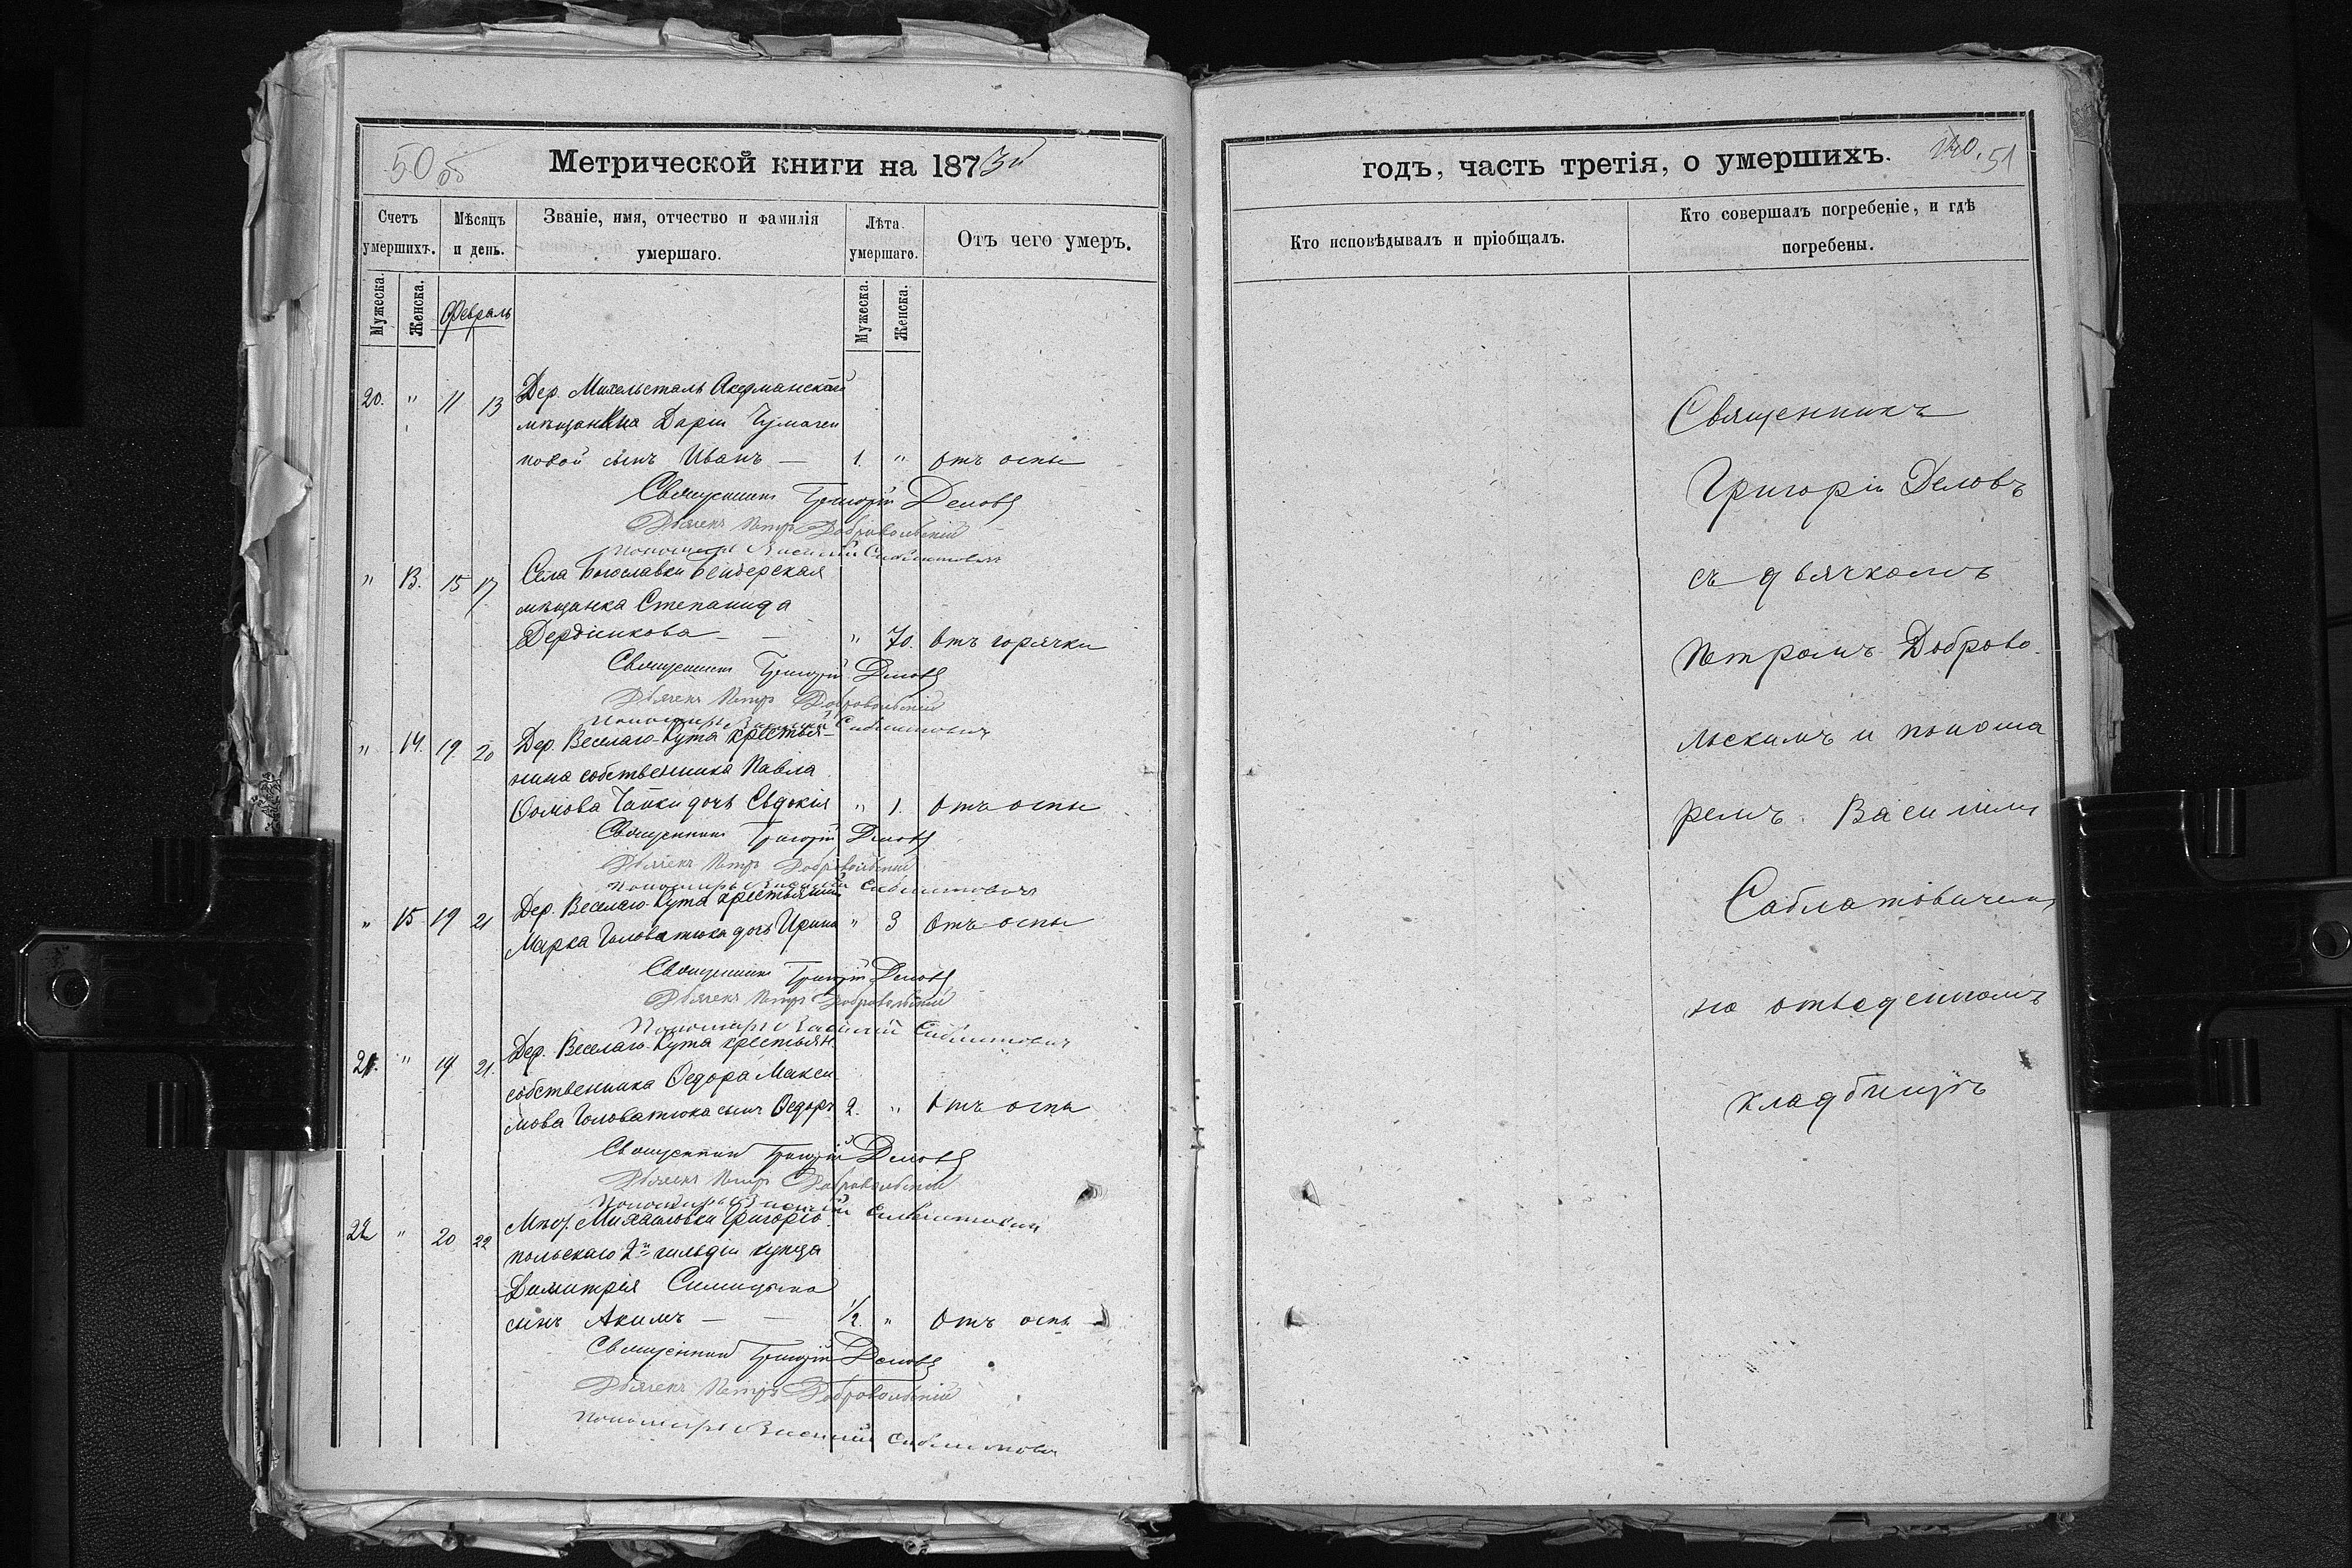 50 об
Метрической книги на 1873й
Счетъ умершихъ.
Мѣсяцъ и день.
Званіе, имя, отчество и фамилія умершаго.
Лѣта умершаго.
Отъ чего умеръ.
Мужеска.
Женска.
Февраль
Мужеска.
Женска.
20. " 11 13 Дер. Михельсталь Акерманской
мѣщанкы Даріи Чумачен
ковой сынъ Иванъ — 1. " Отъ оспы
Священникъ Григорій Деловъ
Дьячекъ Петръ Добровольскій
Пономарь Василій Саблатовичъ
" 13. 15 17 Села Богославки Бендерская
мѣщанка Степанида
— — " 70. Отъ горячки
Священникъ Григорій Деловъ
Дьячекъ Петръ Добровольскій
Пономарь Василій Саблатовичъ
" 14. 19. 20 Дер. Веселаго-Кута крестья-
нина собственника Павла
Ѳомова Чайки дочь Евдокія " 1. Отъ оспы
Священникъ Григорій Деловъ
Дьячекъ Петръ Добровольскій
Пономарь Василій Саблатовичъ
" 15 19 21 Дер. Веселаго-Кута крестьянина
Марка Головатюка дочь Ирина " 3 Отъ оспы
Священникъ Григорій Деловъ
Дьячекъ Петръ Добровольскій
Пономарь Василій Саблатовичъ
21. " 19 21. Дер. Веселаго-Кута крестьян.
собственника Ѳедора Макси
мова Головатюка сынъ Ѳедоръ 2. " Отъ оспы
Священникъ Григорій Деловъ
Дьячекъ Петръ Добровольскій
Пономарь Василій Саблатовичъ
22 " 20 22 Михайловки Григоріо
польскаго 2й гильдіи купца
Димитрія
сынъ Акимъ — — 1/2. " Отъ оспы
Священникъ Григорій Деловъ
Дьячекъ Петръ Добровольскій
Пономарь Василій Саблатовичъ
годъ, часть третія, о умершихъ.
51
Кто исповѣдывалъ и пріобщалъ.
Кто совершалъ погребеніе, и гдѣ погребены.
Священникъ
Григорій Деловъ
съ дьячкомъ
Петромъ Доброво
льскимъ и понома
ремъ Василіем
Саблатовичемъ
на отведенномъ
кладбищѣ